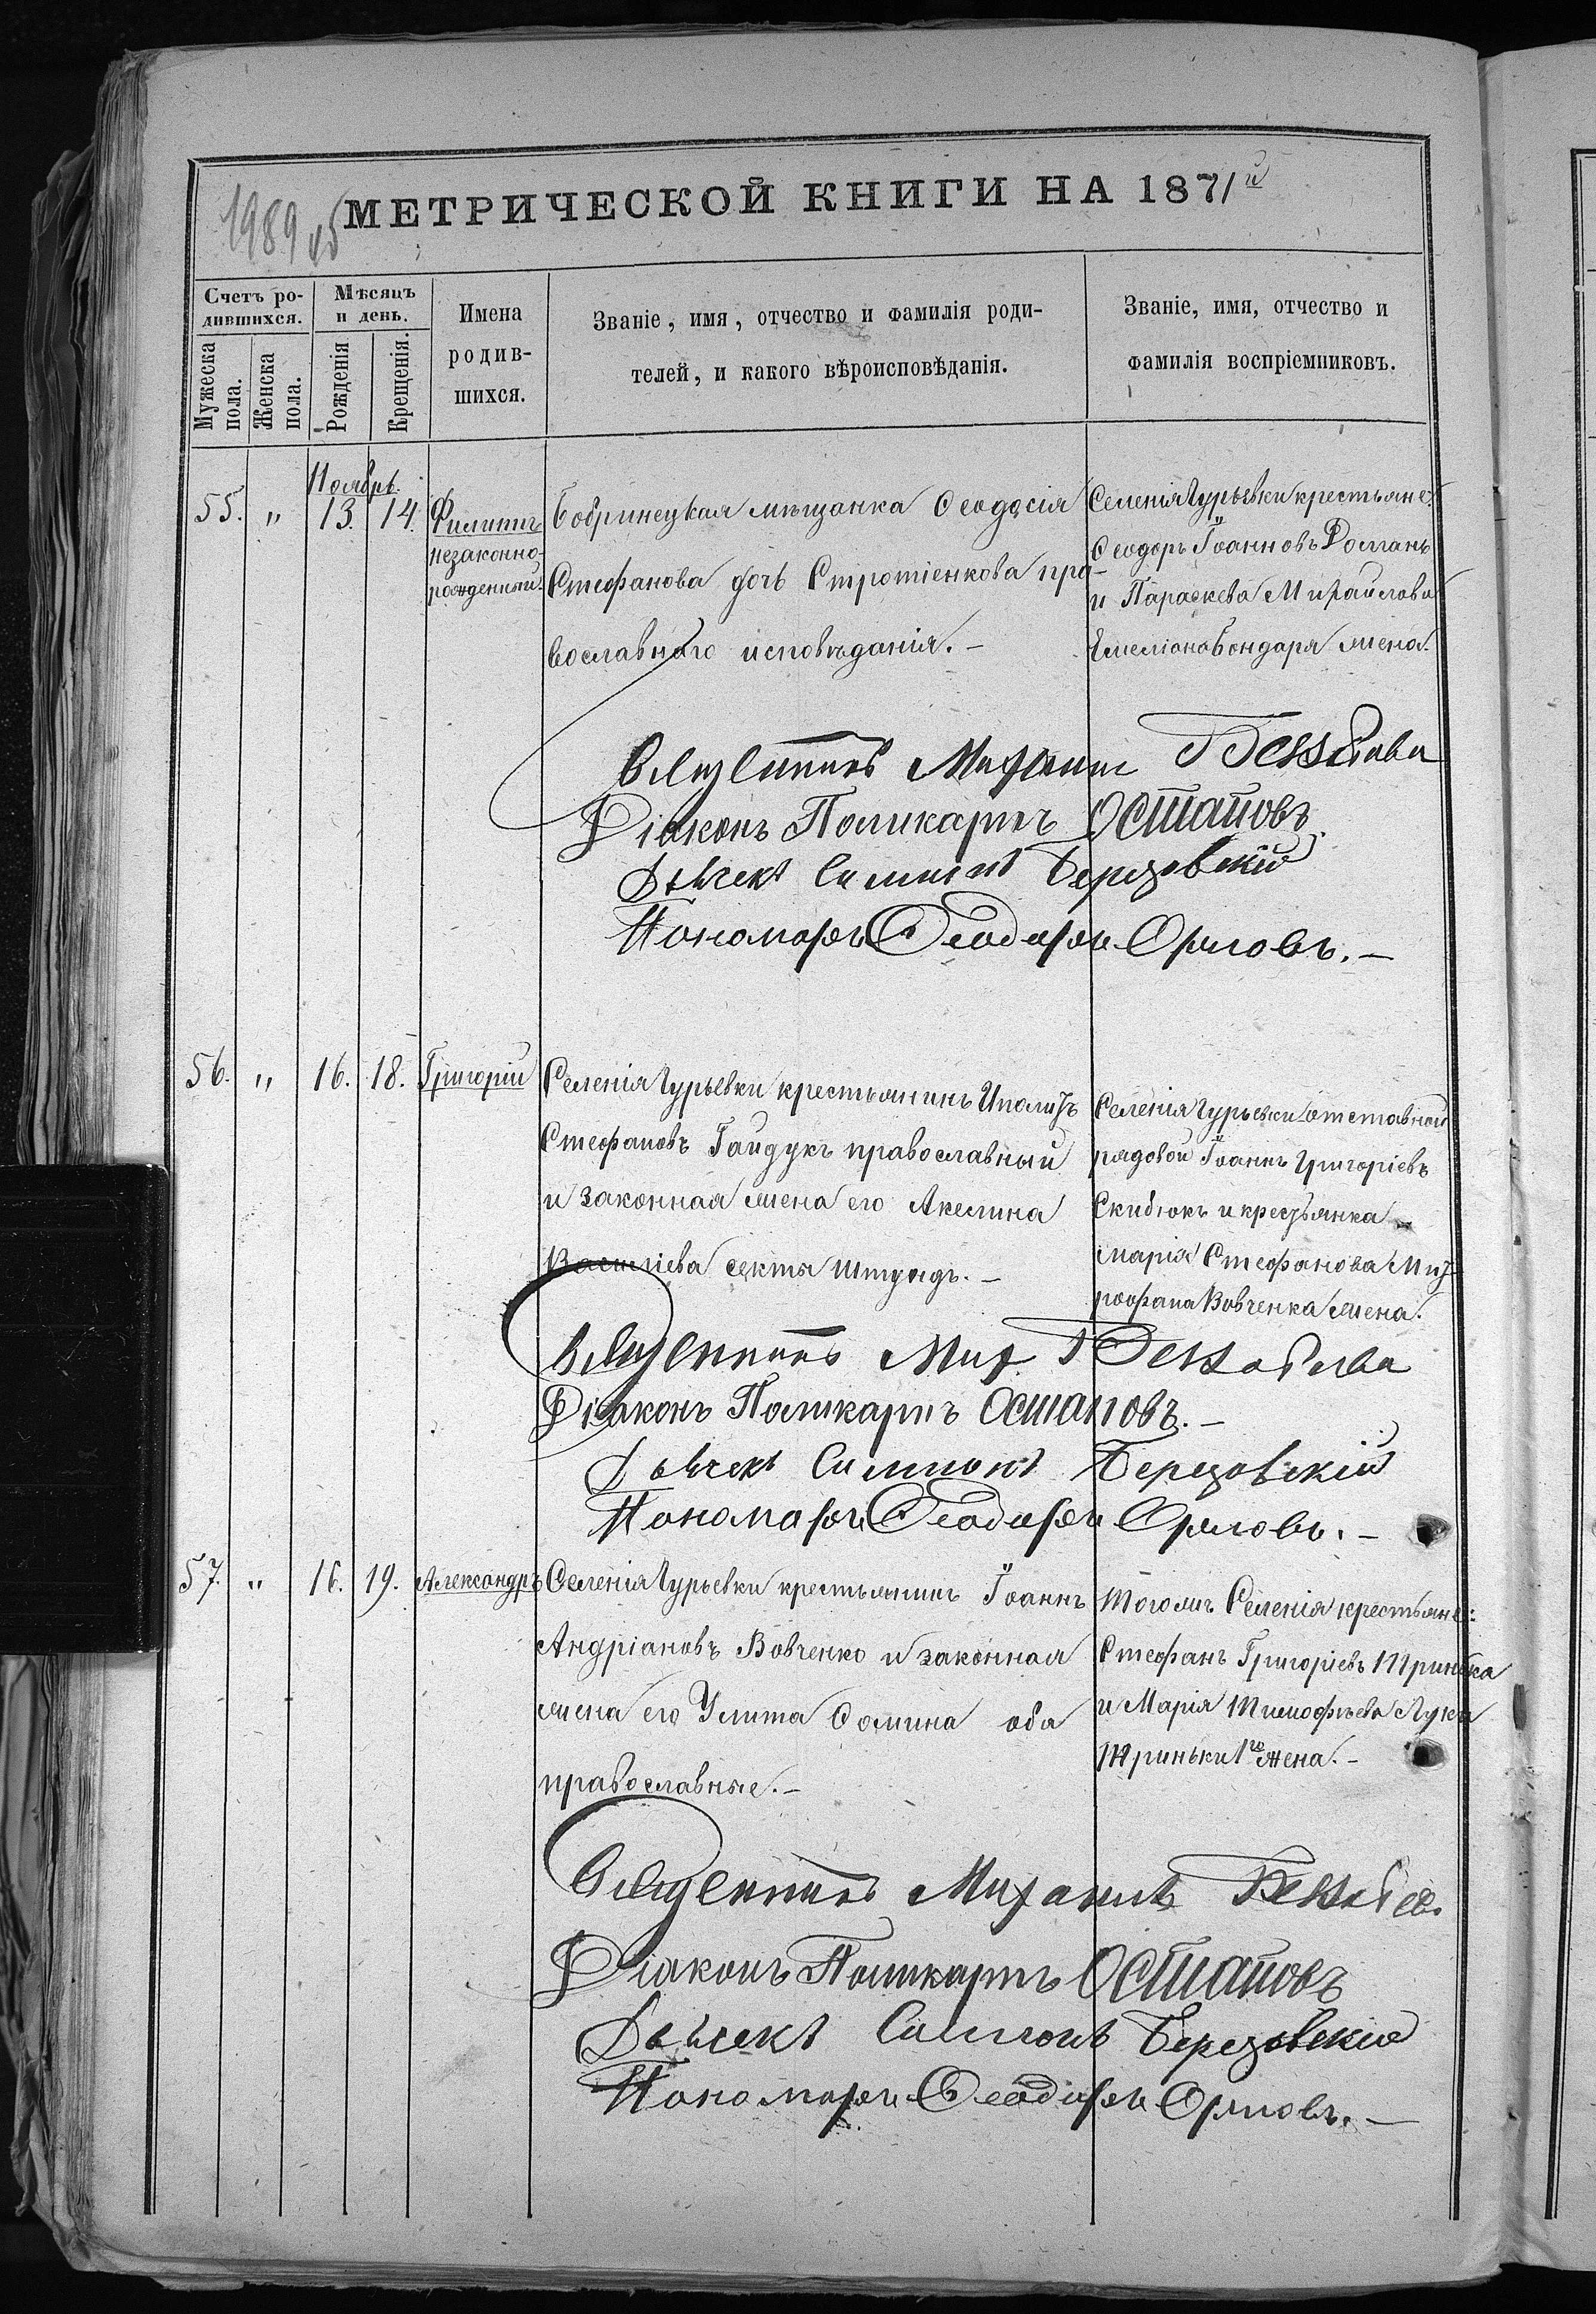 1989 об
МЕТРИЧЕСКОЙ КНИГИ НА 1871й
Счетъ ро-
дившихся.
Мѣсяцъ
и день.
Мужеска
пола.
Женска
пола.
Рожденія
Крещенія.
Имена
родив-
шихся.
Званіе, имя, отчество и фамилія роди-
телей, и какого вѣроисповѣданія.
Званіе, имя, отчество и
фамилія воспріемниковъ.
Ноябрь.
55. " 13. 14. Филиппъ
незаконно-
рожденный.
Бобринецкая мѣщанка Ѳеодосія
Стефанова дочь Стротіенкова пра-
вославнаго исповѣданія. –
Селенія Гурьевки крестьяне:
Ѳеодоръ Іоанновъ Романъ
и Параскева Михайлова
Емеліана Бондаря жена.
Священникъ Михаилъ
Діаконъ Поликарпъ Остаповъ.
Дьячекъ Симеонъ Березовскій
Пономарь Ѳеодоръ Орловъ. –
56. " 16. 18. Григорій
Селенія Гурьевки крестьянинъ Иполитъ
Стефановъ Гайдукъ православный
и законная жена его Акелина
Василіева секты штундъ. –
Селенія Гурьевки отставной
рядовой Іоаннъ Григоріевъ
Скибюкъ и крестьянка
Марія Стефанова Мит-
рофана Вовченка жена.
Священникъ Мих.
Діаконъ Поликарпъ Остаповъ. –
Дьячекъ Симеонъ Березовскій
Пономарь Ѳеодоръ Орловъ. –
57. " 16. 19. Александръ
Селенія Гурьевки крестьянинъ Іоаннъ
Андріановъ Вовченко и законная
жена его Улита Ѳомина оба
православные. –
Того жъ Селенія крестьяне:
Стефанъ Григоріевъ Тринька
и Марія Тимофѣева Луки
Триньки 1го жена. –
Священникъ Михаилъ
Діаконъ Поликарпъ Остаповъ
Дьячекъ Симеонъ Березовскій
Пономарь Ѳеодоръ Орловъ. –